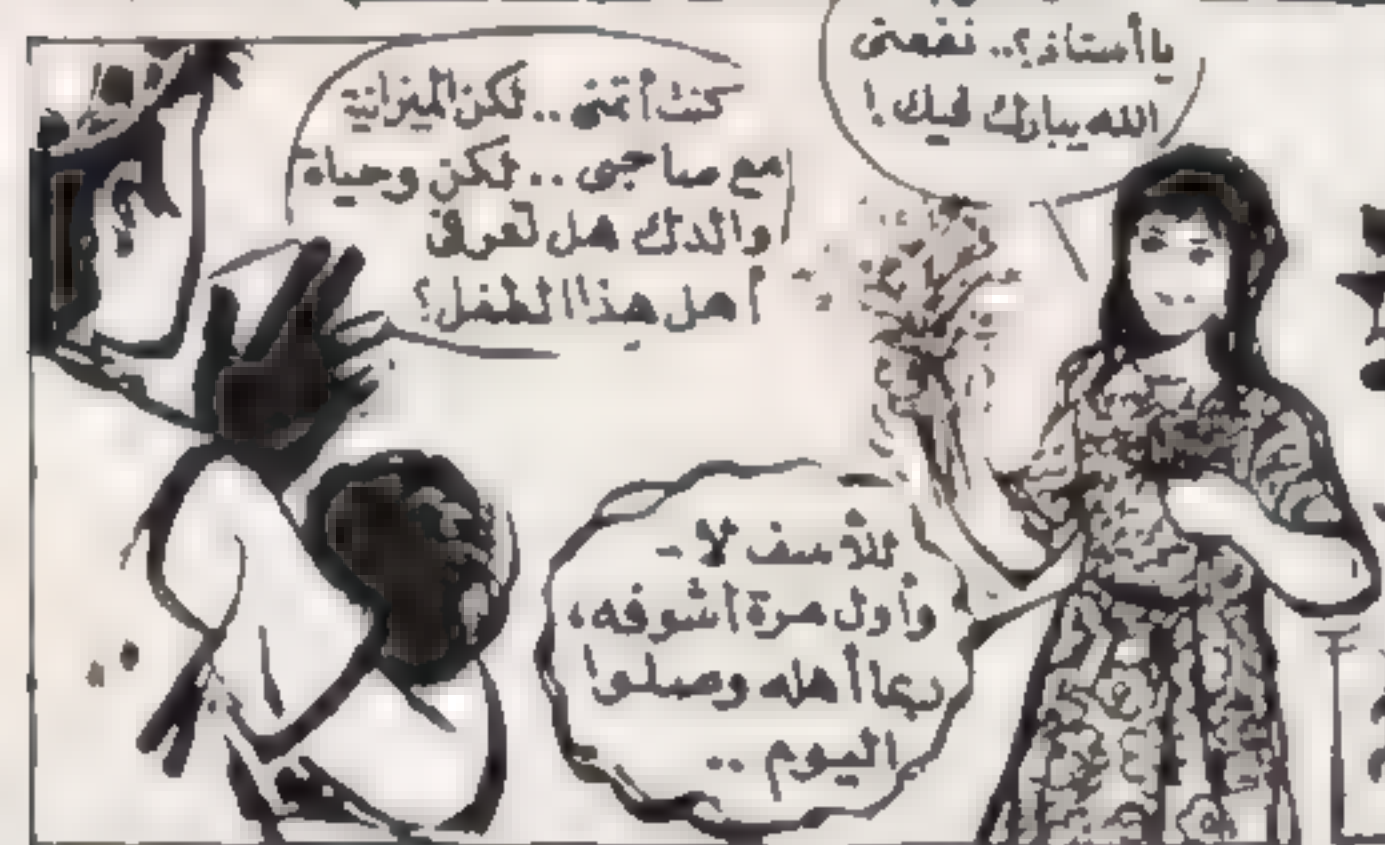 يا أستاذ؟.. نفعنى
الله يبارك فيك!
كنت أتمنى.. لكن الميزانية
مع صاحبى.. لكن وحياة
والدك هل تعرفى
أهل هذا الطفل؟
للأسف لا -
وأول مرة أشوفه،
ربما أهله وصلوا
اليوم ..